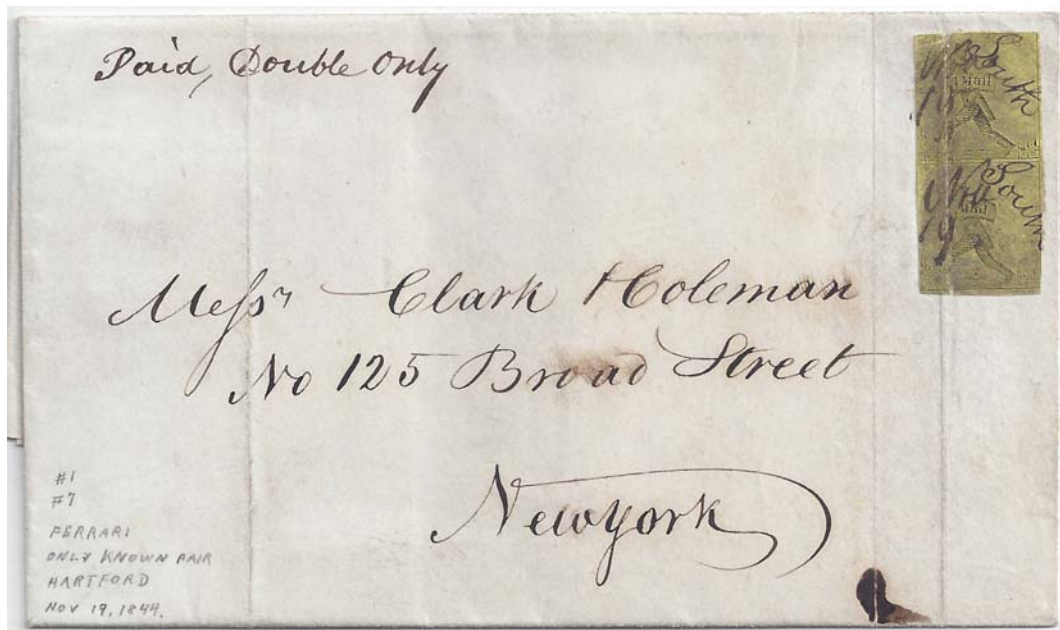 Paid, Double Only
South
Mail
Nov
South
19
Mail
Messrs Clark & Coleman
No 125 Broad Street
New York
#1
#7
FERRARI
ONLY KNOWN PAIR
HARTFORD
NOV 19, 1844.